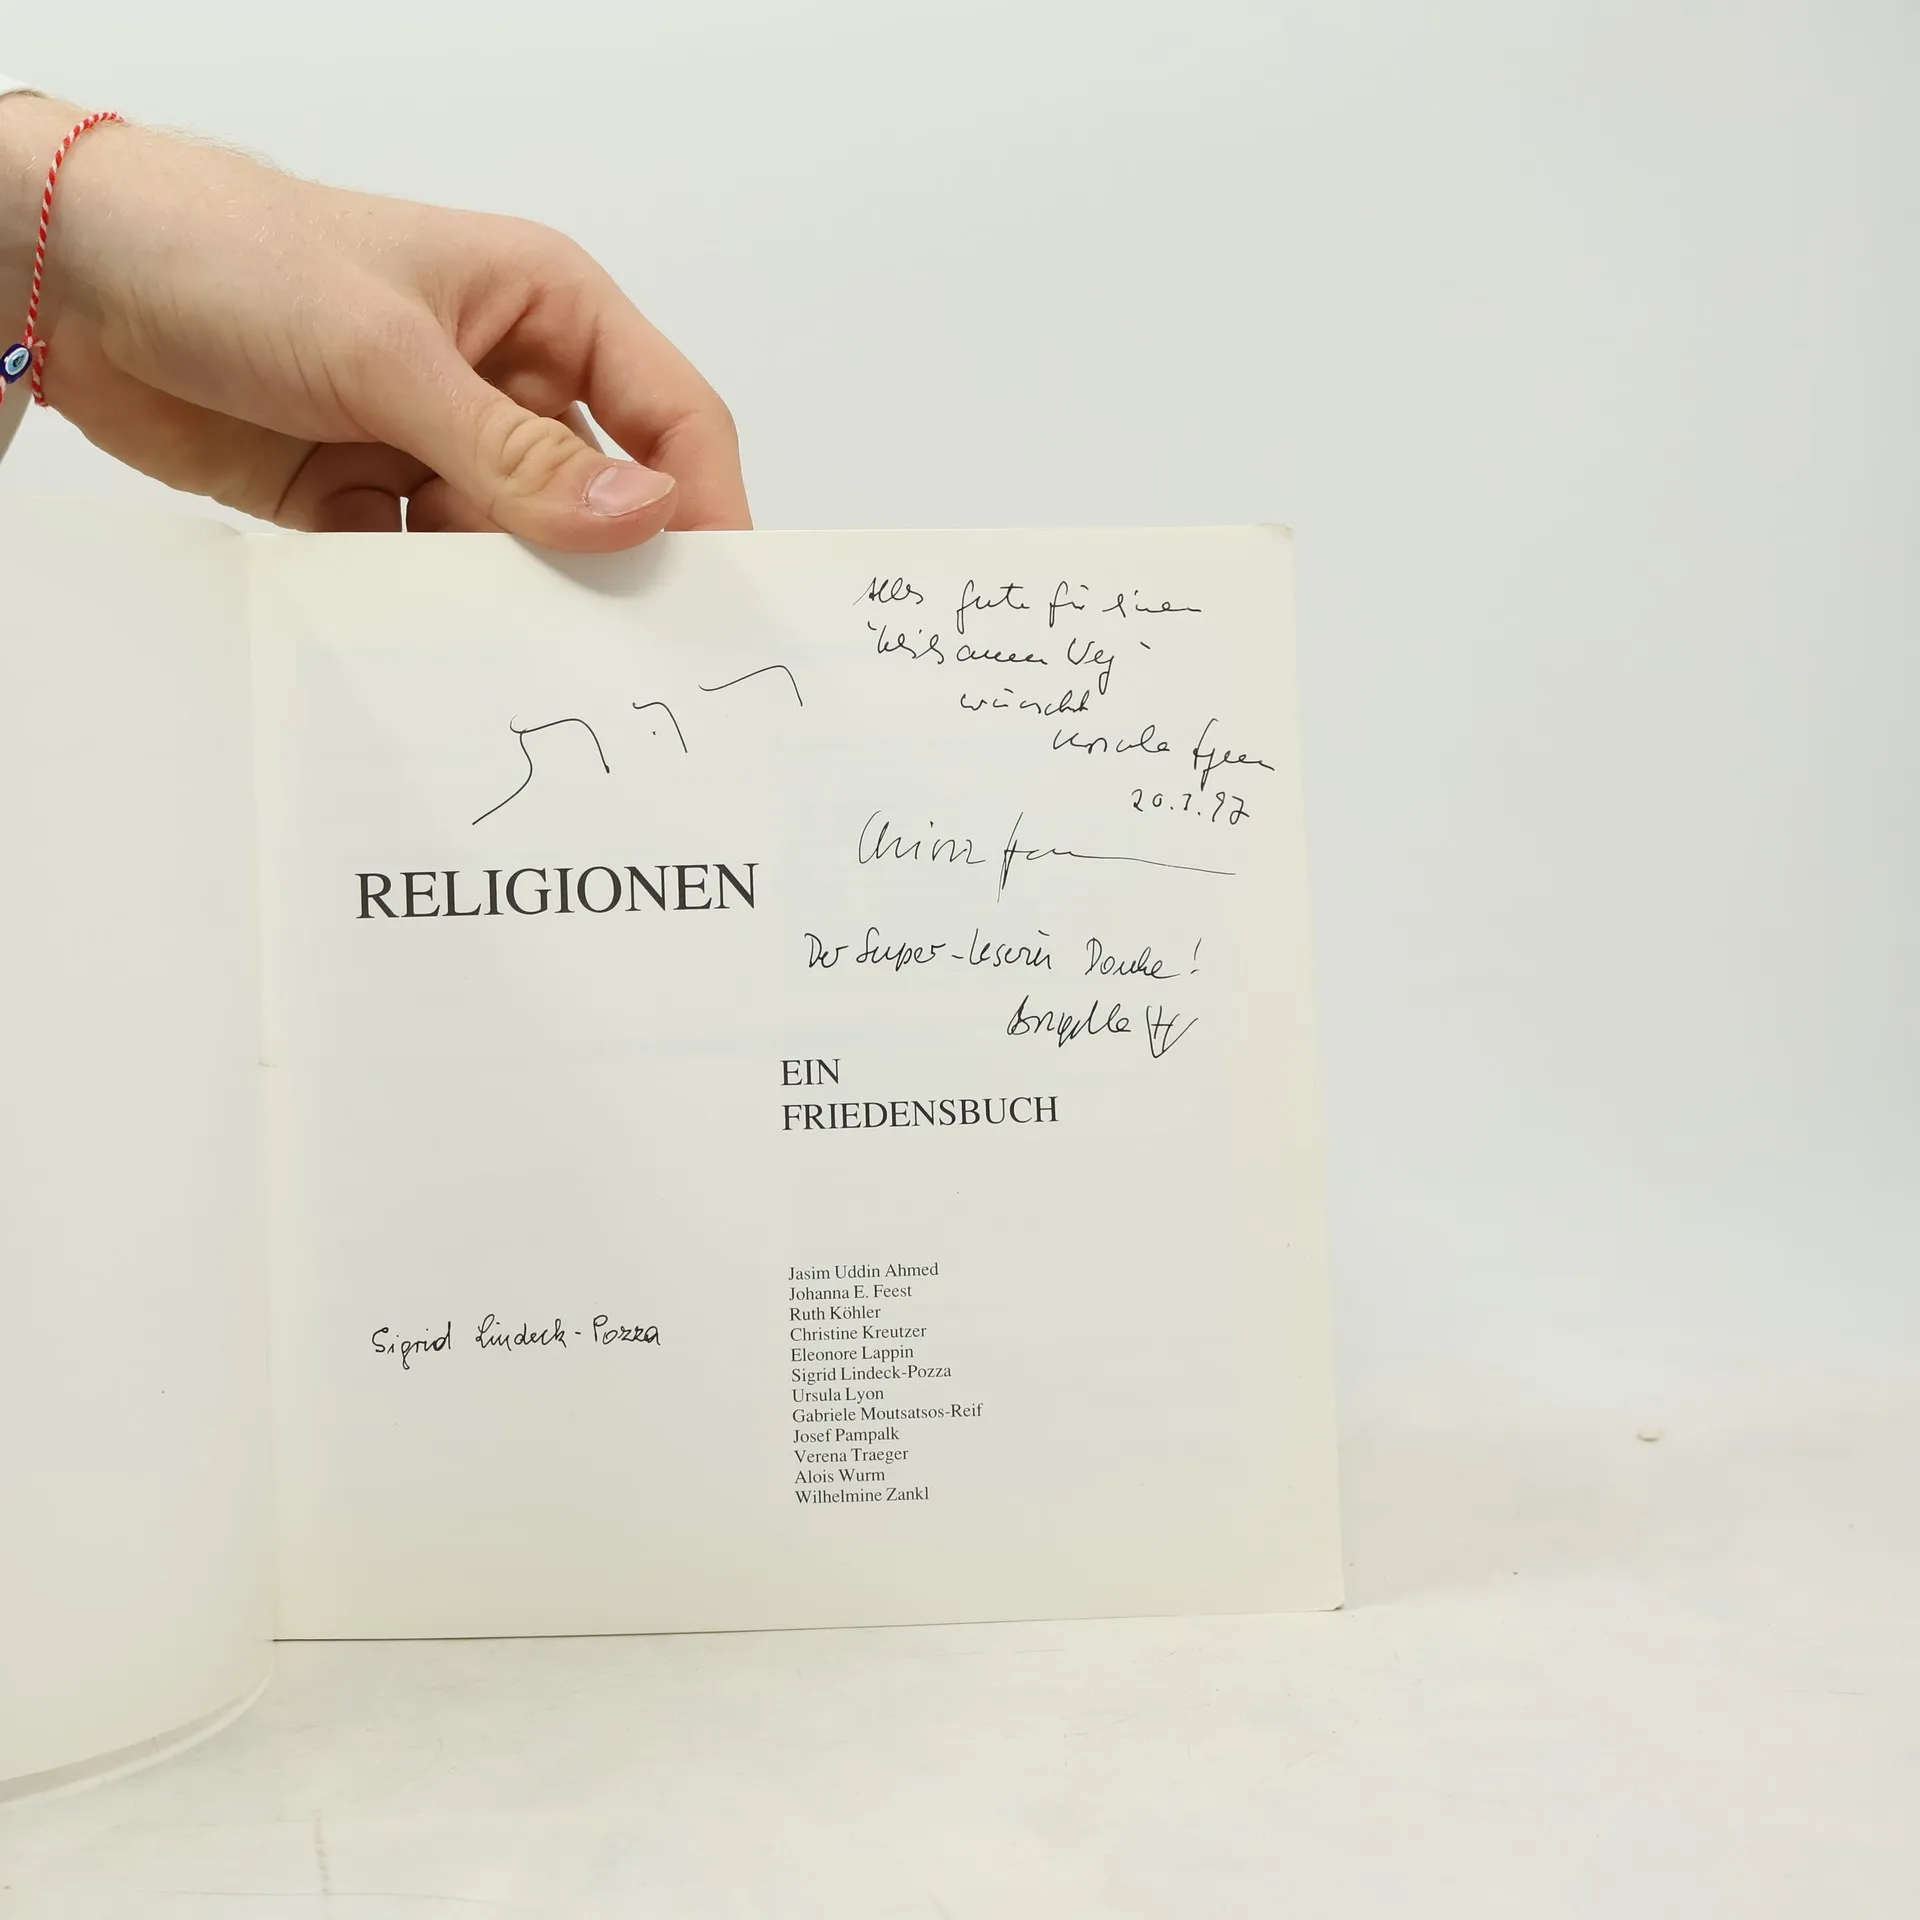 Alles Gute für einen
"heilsamen Weg"
wünscht
Ursula Lyon
97
RELIGIONEN
Der Super-Leserin Danke!
EIN
FRIEDENSBUCH
Jasim Uddin Ahmed
Johanna E. Feest
Ruth Köhler
Christine Kreutzer
Eleonore Lappin
Sigrid Lindeck-Pozza
Ursula Lyon
Gabriele Moutsatsos-Reif
Josef Pampalk
Verena Traeger
Alois Wurm
Wilhelmine Zankl
Sigrid Lindeck-Pozza